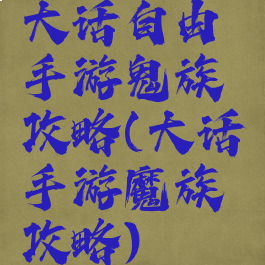 大话自由
手游鬼族
攻略(大话
手游魔族
攻略)